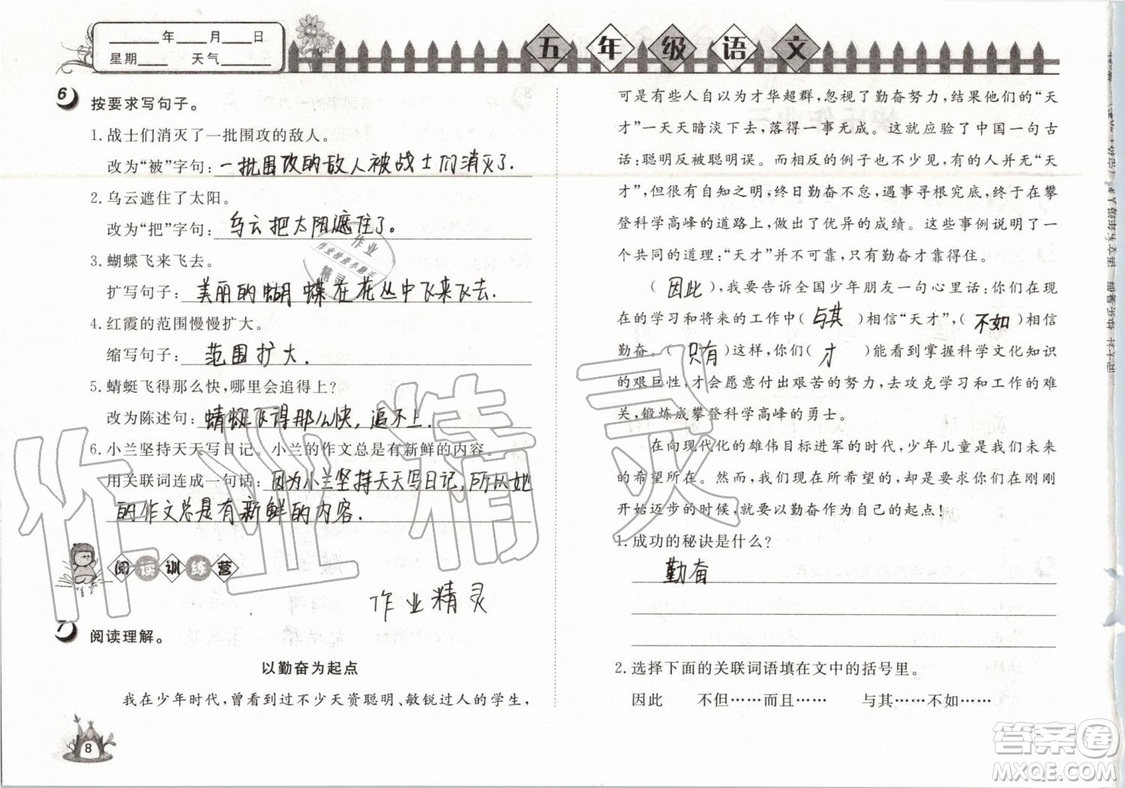 ____年____月____日
星期____ 天气____
五年级语文
6 按要求写句子。
1.战士们消灭了一批围攻的敌人。
改为“被”字句：一批围攻的敌人被战士们消灭了.
2.乌云遮住了太阳。
改为“把”字句：乌云把太阳遮住了.
3.蝴蝶飞来飞去。
扩写句子：美丽的蝴蝶在花丛中飞来飞去.
4.红霞的范围慢慢扩大。
缩写句子：范围扩大.
5.蜻蜓飞得那么快,哪里会追得上?
改为陈述句：蜻蜓飞得那么快,追不上.
6.小兰坚持天天写日记。小兰的作文总是有新鲜的内容。
用关联词连成一句话：因为小兰坚持天天写日记,所以她
的作文总是有新鲜的内容.
阅读训练营
作业精灵
阅读理解。
以勤奋为起点
我在少年时代,曾看到过不少天资聪明、敏锐过人的学生,
8
可是有些人自以为才华超群,忽视了勤奋努力,结果他们的“天
才”一天天暗淡下去,落得一事无成。这就应验了中国一句古
话：聪明反被聪明误。与此相反的例子也不少见,有一些“天
才”,但很有自知之明,终日勤奋不怠,遇事寻根究底,终于在攀
登科学高峰的道路上,做出了优异的成绩。这些事例说明了一
个共同的道理：“天才”并不可靠,只有勤奋才能靠得住。
(因此),我要告诉全国少年朋友一句心里话：你们在现
在的学习和将来的工作中(与其)相信“天才”,(不如)相信
勤奋。(只有)这样,你们(才)能看到掌握科学文化知识
的艰巨性,才会愿意付出艰苦的努力,去攻克学习和工作的难
关,锻炼成攀登科学高峰的勇士。
在向现代化的雄伟目标进军的时代,少年儿童是我们未来
的希望所在。然而,殷切地希望所有的少年儿童,你们在刚刚
开始迈步的时候,就要以勤奋作为自己的起点!
1.成功的秘诀是什么?
勤奋
2.选择下面的关联词语填在文中的括号里。
因此 不但……而且…… 与其……不如……
作业精灵
答案圈
MXQE.COM